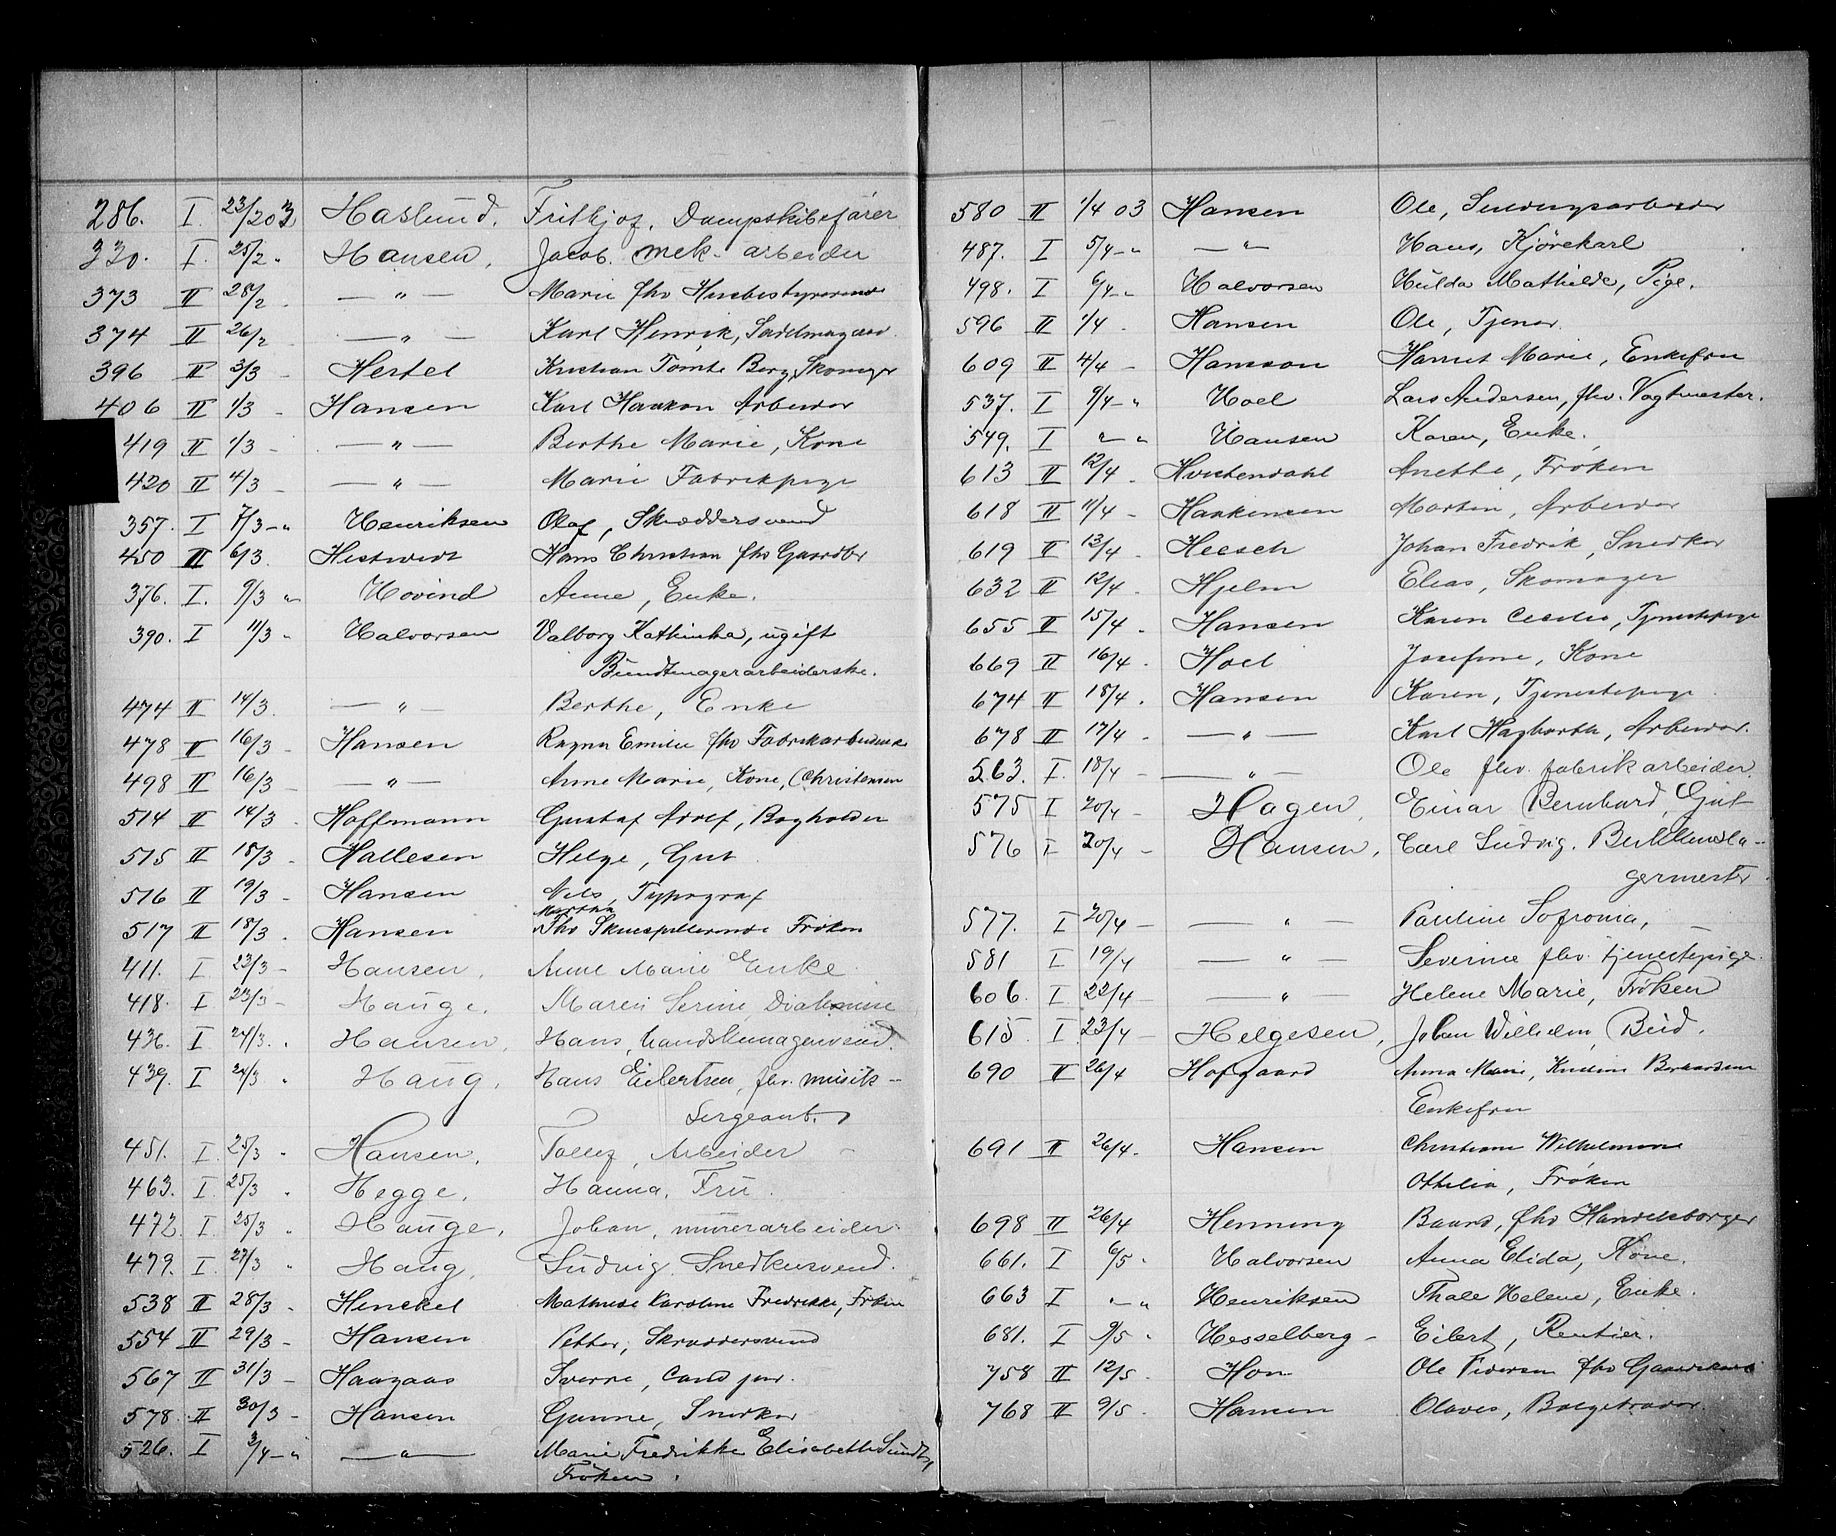 286. I. 23/2 03 Haslund, Frithjof, Dampskibsfører
330. I. 25/2 " Hansen, Jacob. mek. arbeider
373 II 28/2 — " — Marie fhv Husbestyrerinde
374 II 26/2 — " — Karl Henrik, Sadelmagersv
396 II 3/3 - Hertel Kristian Tømte Berg, Skomager
406 II 1/3 - Hansen Karl Haakon Arbeider
419 II 1/3 - — " — Berthe Marie, Kone
420 II 4/3 - — " — Marie Fabrikpige
357. I 7/3 - " Henriksen Olaf, Skræddersvend
450 II 6/3. Hestvedt Hans Christian fhv Gaardbr
376. I. 9/3 " Hovind Anne, Enke.
390. I 11/3 " Halvorsen Valborg Kathinka, ugift
Bundtmagerarbeiderske.
474 II 14/3. — " — Berthe, Enke
478 II 16/3 - Hansen Ragna Emilie fhv Fabrikarbeiderske
498 II 16/3 - — " — Anne Marie, Kone, (Christensen
514 II 14/3 . Hoffmann Gustaf Adolf, Bogholder
515 II 18/3 - Hallesen Helge, Gut
516 II 19/3 - Hansen Nils, Typograf
517 II 18/3 . Hansen Martha fhv Skuespillerinde Frøken
411. I 23/3 - Hansen, Anne Marie Enke
418. I 23/3 - Hauge, Maren Serine, Diakonisse
436. I 24/3. " Hansen, Hans, handskemagersvend.
439. I 24/3 " Haug, Hans Eilertsen, fhv. musik-
Sergeant.
451. I 25/3 " Hansen, Tollef, Arbeider
463. I 25/3 " Hegge, Hanna, Fru.
472. I. 25/3 " Hauge, Johan, murerarbeider
479. I. 27/3 " Haug, Ludvig. Snedkersvend.
538 II 28/3 . Henckel Mathilde Karoline Fredrikke, Frøken
554 II 29/3 - Hansen Petter, Skræddersvend
567 II 31/3 - Haagaas Sverre, Cand jur.
578 II 30/3 - Hansen Gunne, Snedker
526. I 3/4 - " — " — Marie Fredrikke Elisabeth Sundt,
Frøken.
580 II 1/4 03 Hansen Ole, arbeider
487. I 5/4 - " — " — Hans, Kjørekarl
498. I 6/4 - " Halvorsen Hulda Mathilde, Pige.
596 II 1/4 . Hansen Ole, Tjener
609 II 4/4 - Hansson Harriet Marie, Enkefru
537. I 9/4 - " Hoel Lars Andersen, fhv. Vogtmester.
549. I " - " Hansen Karen, Enke.
613 II 12/4 . Hvistendahl Anette, Frøken
618 II 11/4 - Haakensen Martin, Arbeider
619 II 13/4 . Heesch Johan Fredrik, Snedker
632 II 12/4 . Hjelm Elias, Skomager
655 II 15/4 . Hansen Karen Cecilie, Tjenestepige
669 II 16/4 . Hoel Josefine, Kone
674 II 18/4 . Hansen Karen, Tjenestepige
678 II 17/4 - — " — Karl Hagbarth, Arbeider.
563. I. 18/4 - — " — Ole fhv. fabrikarbeider
575 I 20/4 - Hagen, Einar Bernhard, Gut
576 I 20/4 - Hansen, Carl Ludvig.
germester.
577. I 20/4 - — " — Pauline Sofronia,
581 I 19/4 — " — Severine fhv. tjenestepige
606. I. 22/4 - — " — Helene Marie, Frøken
615 I 23/4 - Helgesen, Johan Wilhelm, Bud.
690 II 26/4 Hofgaard Anna Marie, Kristine Bernardine
Enkefru
691 II 26/4. Hansen Christiane Wilhelmine
Othilia, Frøken
698 II 26/4 Henning Baard, fhv Handelsborger
661. I 6/5 " Halvorsen Anna Elida, Kone.
663 I " - " Henriksen Thale Helene, Enke.
681. I 9/5 " Hesselberg - Eilert, Rentier.
758 II 12/5 . Hon Ole Pedersen fhv Gaardeier
768 II 9/5 . Hansen Olaves,